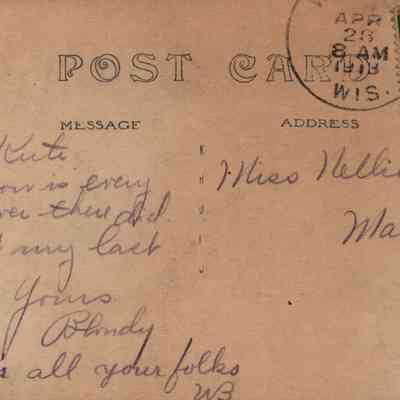 APR
28
8 AM
1918
WIS.
POST CARD
MESSAGE
ADDRESS
Kute
is every
over there did
my last
Yours
Blondy
all your folks
WB
Miss Nellie
Ma